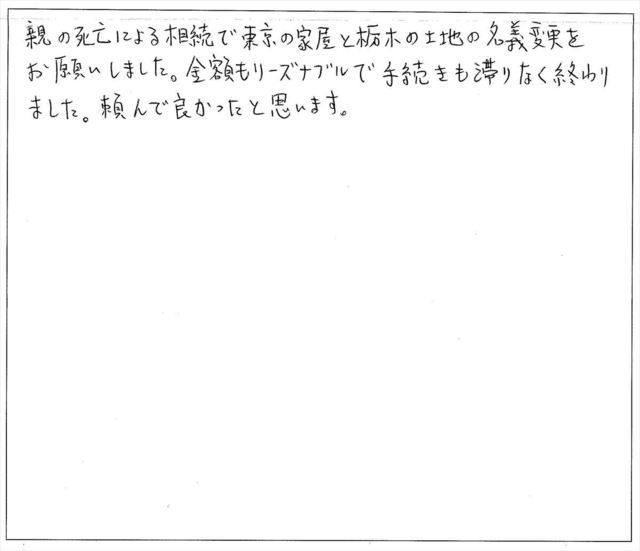 親の死亡による相続で東京の家屋と栃木の土地の名義変更を
お願いしました。金額もリーズナブルで手続きも滞りなく終わり
ました。頼んで良かったと思います。